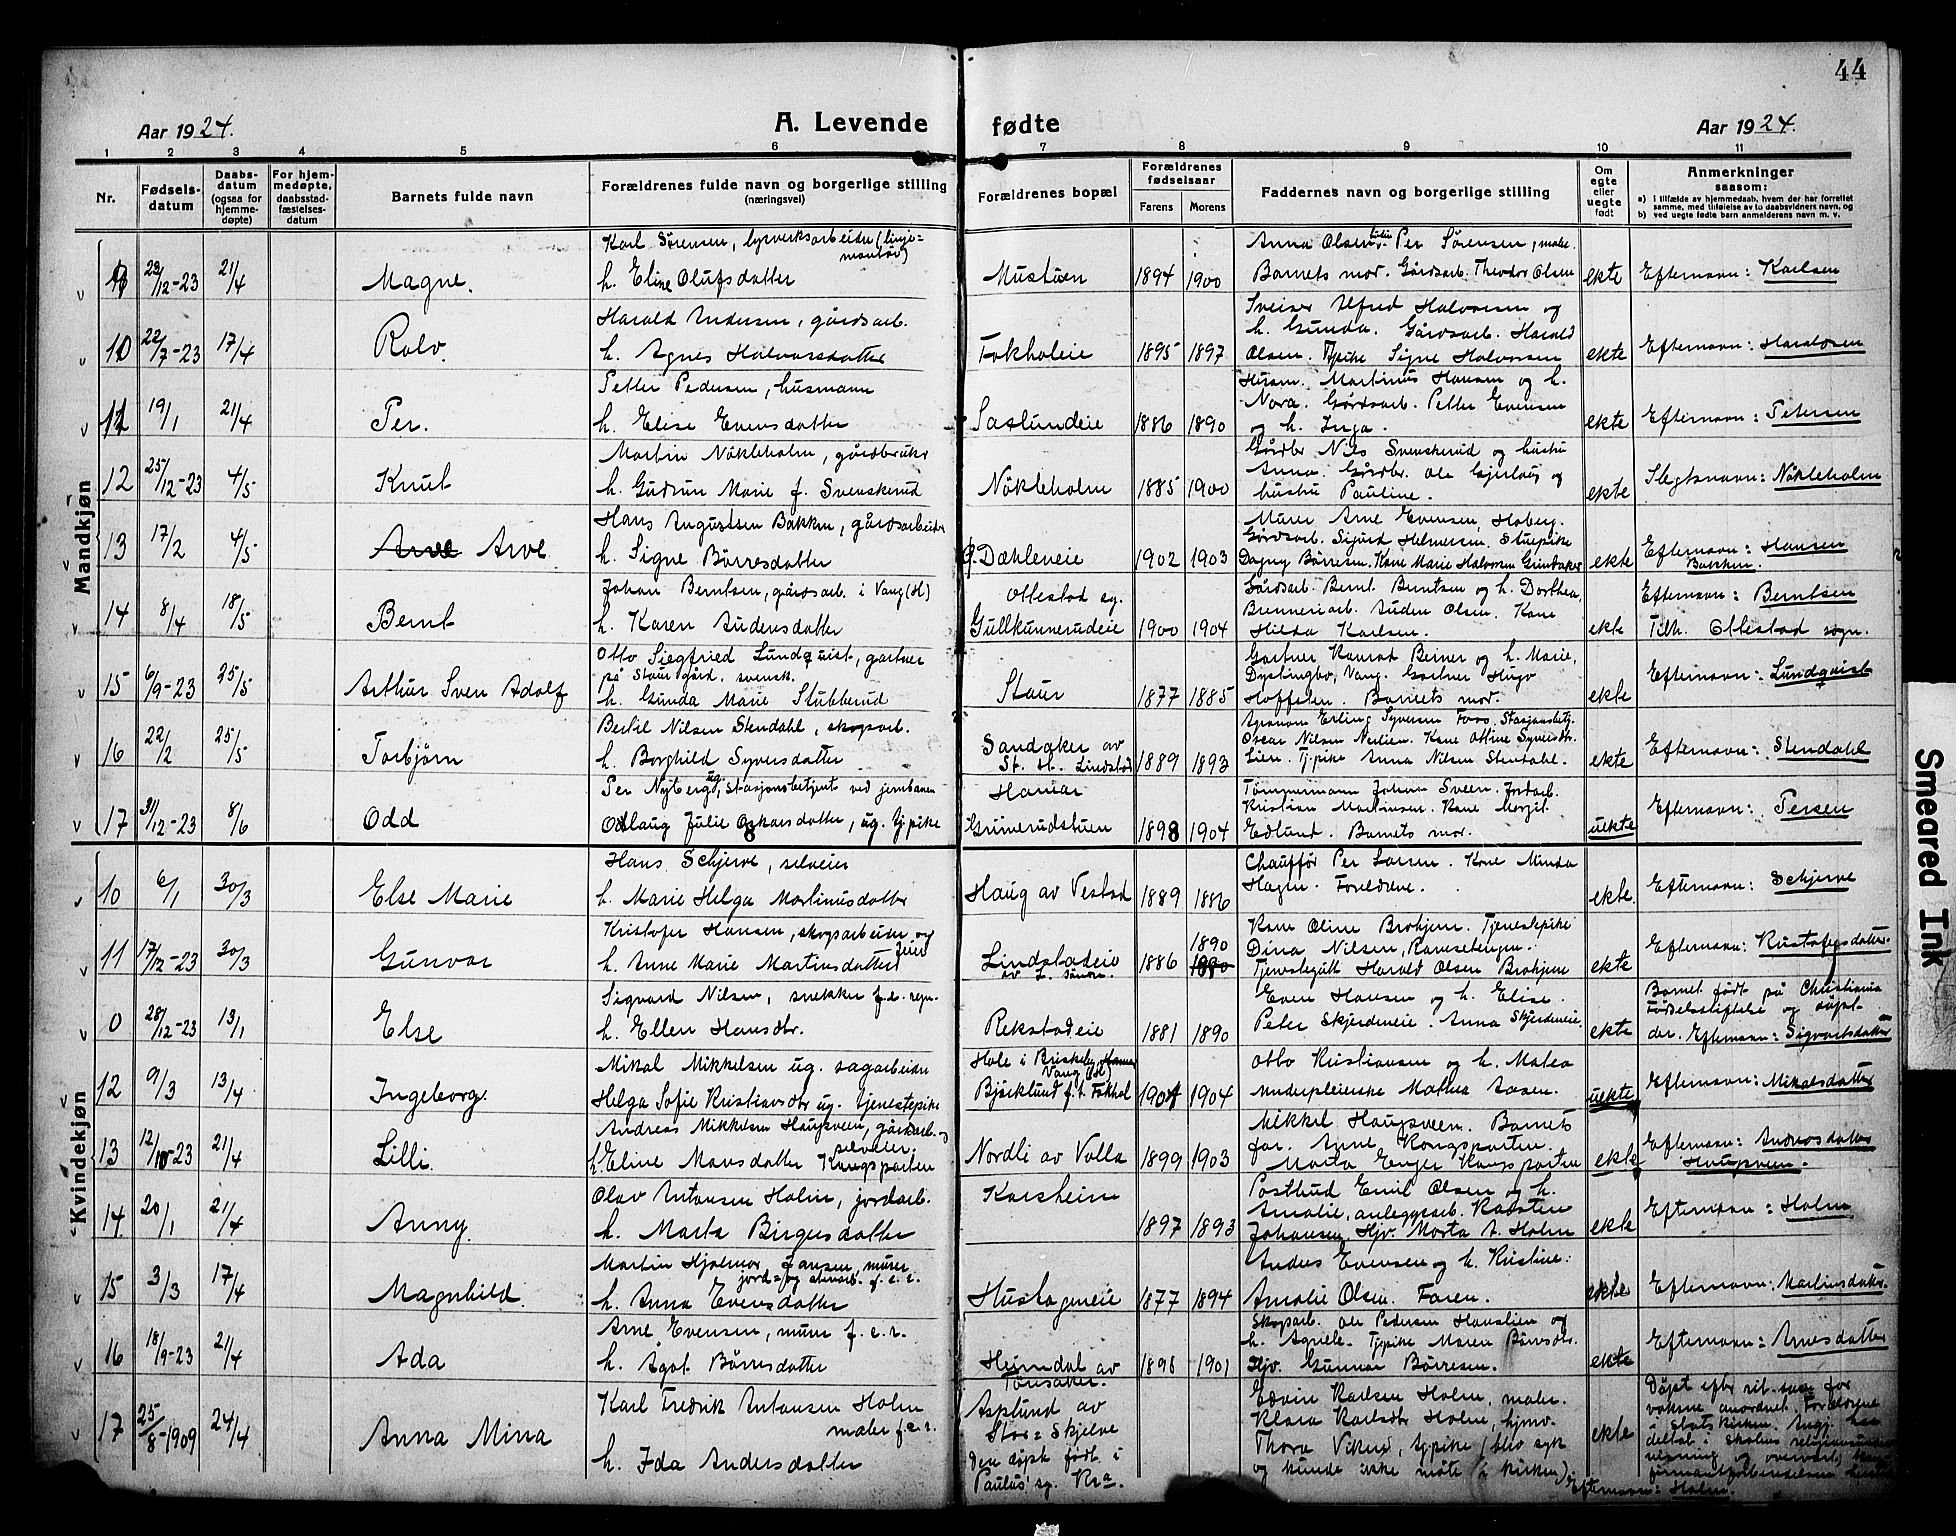 44
Aar 1924.
A. Levende fødte
Aar 1924.
1 2 3 4 5 6 7 8 9 10 11
Nr.
Fødsels-
datum
Daabs-
datum
(ogsaa for
hjemme-
døpte)
For hjem-
medøpte,
daabsstad-
fæstelses-
datum
Barnets fulde navn
Forældrenes fulde navn og borgerlige stilling
(næringsvei)
Forældrenes bopæl
Forældrenes
fødselsaar
Farens Morens
Faddernes navn og borgerlige stilling
Om
egte
eller
uegte
født
Anmerkninger
saasom:
a) i tilfælde av hjemmedaab, hvem der har forrettet
samme, med tilføielse av to daabsvidners navn, og
b) ved uegte fødte barn anmelderens navn m. v.
Mandkjøn
Karl Sørensen, lysverksarbeider (linje=
montør)
h. Eline Olufsdatter
21/4
Magne.
Mustuen
1894 1900
Anna Olsen Per Sørensen, maler.
Barnets mor. Gårdsarb. Theodor Olsen
ekte
Efternavn: Karlsen
10
22/7-23
17/4
Rolv.
Harald Andersen, gårdsarb.
h. Agnes Halvorsdatter
Fokholeie
1895 1897
Sveiser Alfred Halvorsen og
h. Gunda. Gårdsarb. Harald
Olsen. Tjpike Signe Halvorsen
ekte
Efternavn: Haraldsen
11
19/1
21/4
Per.
Petter Pedersen, husmann
h. Elise Evensdatter
Saslundeie
1886 1890
Husm. Martinus Hansen og h.
Nora. Gårdsarb. Petter Evensen
og h. Inga.
ekte
Efternavn: Petersen
12
25/12-23
4/5
Knut
Martin Nökleholm, gårdbruker
h. Gudrun Marie f. Svenskerud
Nökleholm
1885 1900
Gårdbr Nils Svenskerud og hustru
Anna. Gårdbr. Ole Gjerlaug og
hustru Pauline.
ekte
Slegtsnavn: Nökleholm
13
17/2
4/5
Arve Arve
Hans Augustsen Bakken, gårdsarbeider
h. Signe Börresdatter
Dæhleneie
1902 1903
Murer Arne Evensen, Hoberg.
Gårdsarb. Sigurd Helmersen. Stuepike
Dagny Børresen. Kone Marie Halvorsen Grimbaker
ekte
Efternavn: Hansen
Bakken.
14
8/4
18/5
Bernt
Johan Berntsen, gårdsarb. i Vang (H)
h. Karen Andersdatter
Ottestad sg.
Gullkunnerudeie
1900 1904
Gårdsarb. Bernt Berntsen og h. Dorthea,
Brenneriarb. Anders Olsen. Kone
Hilda Karlsen.
ekte
Efternavn: Berntsen
Tilh. Ottestad sogn.
15
6/9-23
25/5
Arthur Sven Adolf
Otto Siegfried Lundquist, gartner
på Staur gård. svensk.
h. Gunda Marie Stubberud
Staur
1877 1885
Gartner Konrad Berner og h. Marie,
Dystingbo, Vang. Gartner Hugo
Hoffsten. Barnets mor.
ekte
Efternavn: Lundqvist
16
22/2
25/5
Torbjørn
Bertil Nilsen Stendahl, skogsarb.
h. Borghild Syversdatter
Sandaker av
St. H. Lindstad
1889 1893
Agronom Erling Syversen Foss. Stasjonsbetj.
Oscar Nilsen Nerlien. Kone Ottine Syversdtr.
Lien. Tj.pike Anna Nilsen Stendahl.
ekte
Efternavn: Stendahl
17
31/12-23
8/6
Odd
Per Nyberg ug, stasjonsbetjent ved jernbanen
Odlaug Julie Oskarsdatter, ug. tj.pike
Hamar
Grimerudstuen
1898 1904
Tømmermann Johan Sveen. Jordarb.
Kristian Martinsen. Kone Margit
Edlund. Barnets mor.
uekte
Efternavn: Persen
Kvindekjøn
10
6/1
30/3
Else Marie
Hans Schjerve, selveier
h. Marie Helga Martinusdatter
Haug av Vestad
1889 1886
Chauffør Per Larsen. Kone Minda
Hagen. Foreldrene.
ekte
Efternavn: Schjerve
11
17/12-23
30/3
Gunvor
Kristofer Hansen, skogsarbeider og
h. Anne Marie Martinsdatter
Lindstadeie
av L. søndre.
1886 1890
1880
Kone Oline Brohjem. Tjenestepike
Dina Nilsen,
Tjenestegutt Harald Olsen Brohjem
ekte
Efternavn: Kristofersdatter
0
28/12-23
13/1
Else
Sigvard Nilsen, snekker f.e. regn.
h. Ellen Hansdtr.
Rekstadeie
1881 1890
Even Hansen og h. Elise.
Peter Skjerdeneie. Anna Skjerdeneie,
ekte
Barnet født på Christiania
Fødselsstiftelse og døpt
der. Efternavn: Sigvartsdatter
12
9/3
13/4
Ingeborg.
Mikal Mikkelsen ug. sagarbeider
Helga Sofie Kristiansdtr ug. tjenestepike
Hole i Briskeby Hamar
Vang (H)
Bjørklund f.t. Fokhol
1901 1904
Otto Kristiansen og h. Matea
underpleierske Mathea Aasen.
uekte
Efternavn: Mikalsdatter
13
12/10-23
21/4
Lilli.
Andreas Mikkelsen Haugsveen, gårdarb. og
selveier
h. Eline Mansdatter Kongsparten
Nordli av Volla
1899 1903
Mikkel Haugsveen. Barnets
far. Anne Kongsparten.
Marta Enger Kongsparten
ekte
Efternavn: Andreasdatter
Haugsveen.
14
20/1
21/4
Anny.
Olav Antonsen Holm, jordarb.
h. Marta Birgersdatter
Karsheim
1897 1893
Postbud Emil Olsen og h.
Amalie, anleggsarb. Karsten
Johansen, Hjv. Marta A. Holm
ekte
Efternavn: Holm
15
3/3
17/4
Magnhild.
Martin Hjalmar Hansen, murer
jord= og stenarb. f.e.r.
h. Anna Evensdatter
Hustagneie
1877 1894
Anders Evensen og h. Kristine.
Amalie Olsen. Faren.
ekte
Efternavn: Martinsdatter
16
18/9-23
21/4
Ada
Arne Evensen, murer f.e.r.
h. Ågot Børresdatter
Heimdal av
Tønsaker.
1898 1901
Skogsarb. Ole Pedersen Hanslien og
h. Agnete. Tj.pike Maren Børresdtr.
Hjv. Gunnar Børresen.
ekte
Efternavn: Arnesdatter
17
25/8-1909
24/4
Anna Mina
Karl Fredrik Antonsen Holm
maler f.e.r.
h. Ida Andersdatter
Asplund av
Stor=Skjelve
Den døpt født i
Paulus' sg. Kra.
Edvin Karlsen Holm, maler.
Klara Karlsdtr Holm, hjmv.
Thora Vikerud, tjpike (blev syk
og kunde ikke møte i kirken).
ekte
Døpt efter rit. som for
voksne anordnet. Foreldrene
i Statskirken. Angj. har
deltat i skolens religionsunder-
visning og overvært
Efternavn: Holm.
Smeared Ink